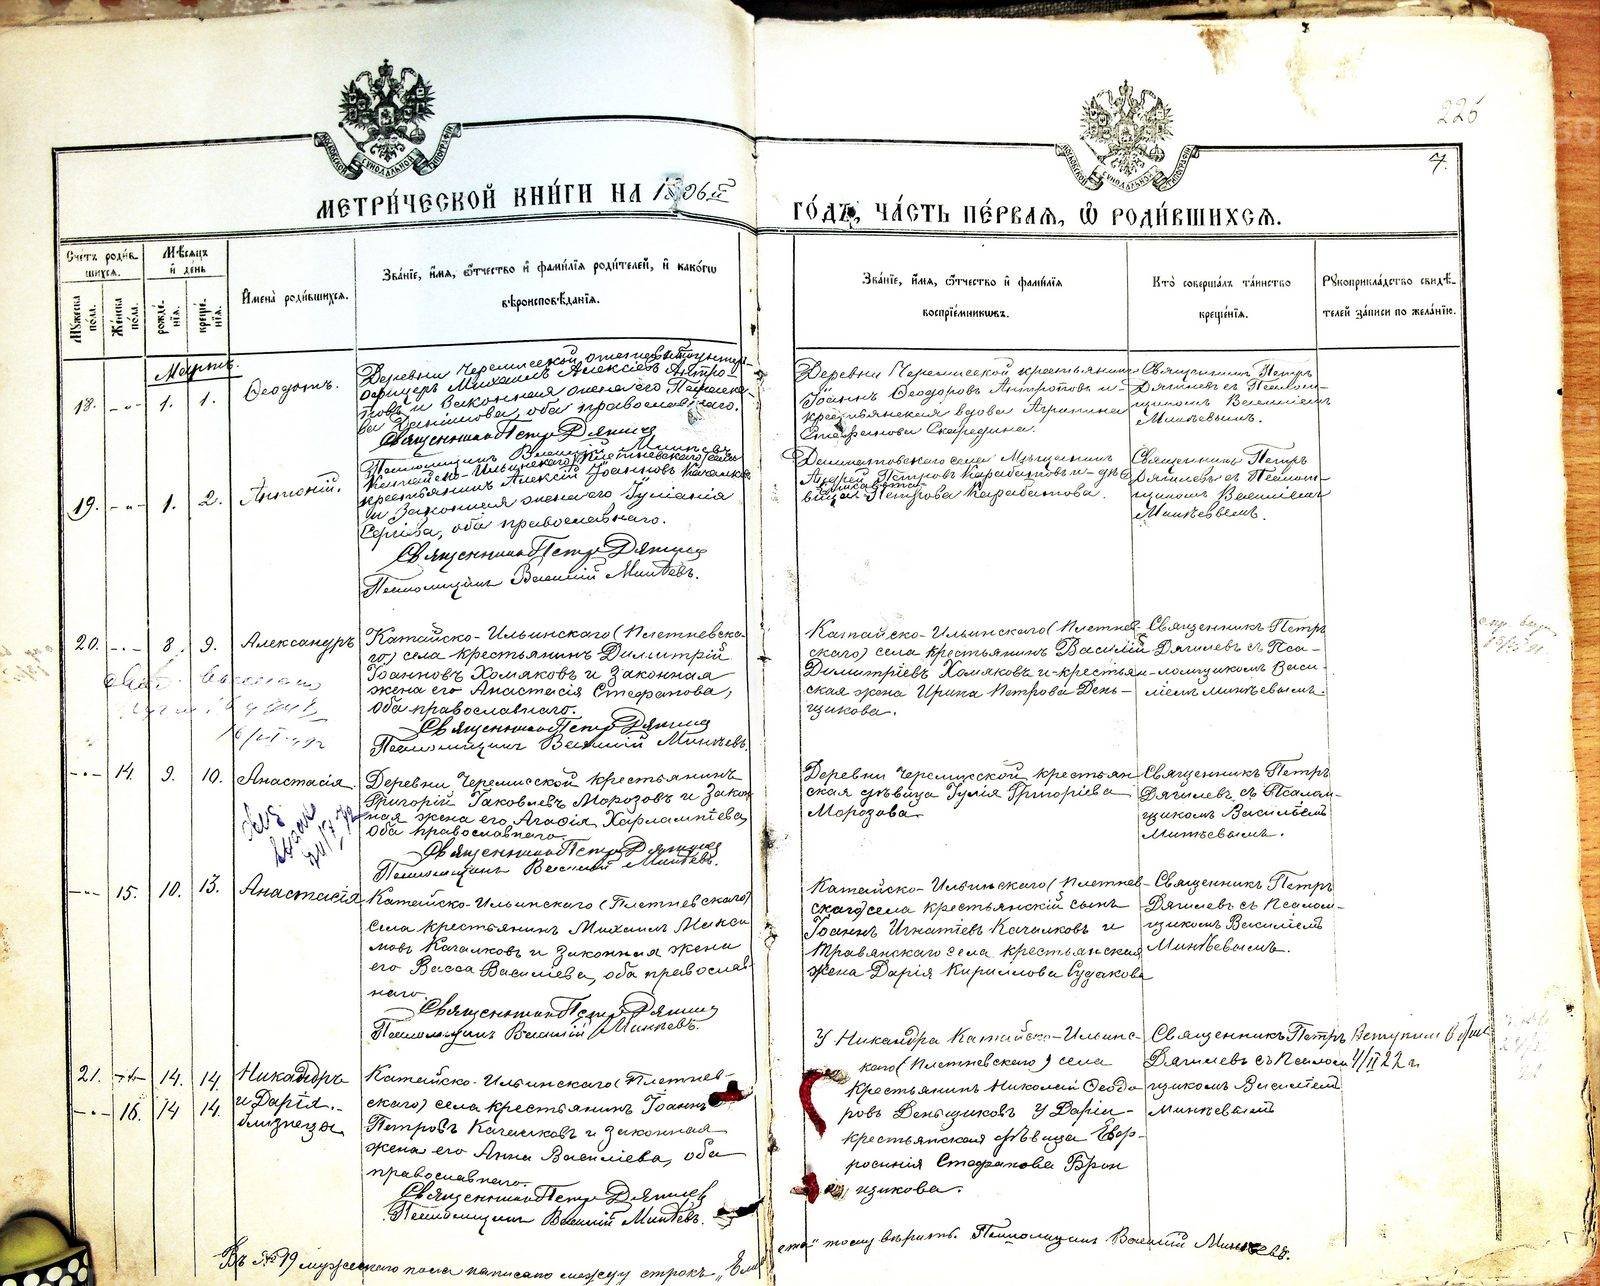 225
7.
МОСКОВСКОЙ СѴНОДАЛЬНОЙ ТИПОГРАФІИ
МОСКОВСКОЙ СѴНОДАЛЬНОЙ ТИПОГРАФІИ
МЕТРИ́ЧЕСКОЙ КНИ́ГИ НА 1896й
ГО́ДЪ, ЧА́СТЬ ПЕ́РВАЯ, Ѽ РОДИ́ВШИХСЯ.
Сче́тъ роди́в-
шихся.
Мѣ́сяцъ
и҆ де́нь
Му́жеска по́ла.
Же́нска по́ла.
рожде́-
нія.
креще́-
нія.
И҆мена̀ роди́вшихся.
Зва́ніе, и҆́мя, ѻ҆́тчество и҆ фами́лія роди́телей, и҆ како́гѡ
вѣроисповѣ́данія.
Зва́ніе, и҆́мя, ѻ҆́тчество и҆ фами́лія
воспріе́мниковъ.
Кто̀ соверша́лъ та́инство
креще́нія.
Рукоприкла́дство свидѣ́-
телей за́писи по жела́нію.
Мартъ.
18. -"- 1. 1.
Ѳеодотъ.
Деревни Черемисской
офицеръ Михаилъ Алексіевъ Антро-
повъ и законная жена его
оба православнаго.
Священникъ Петръ Дягилевъ
Псаломщикъ Василій Минѣевъ
Деревни Черемисской крестьянинъ
Іоаннъ Ѳеодоровъ Антроповъ и
крестьянская вдова Агрипина
Стефанова Скаредина.
Священникъ Петръ
Дягилевъ съ Псалом-
щикомъ Василіемъ
Минѣевымъ.
19. -"- 1. 2.
Антоній.
Катайско-Ильинскаго (Плетневскаго) села
крестьянинъ Алексій Іоанновъ Качалковъ
и законная жена его Іуліанія
Сергіева, оба православнаго.
Священникъ Петръ Дягилевъ
Псаломщикъ Василій Минѣевъ.
Далматовскаго села Мѣщанинъ
Андрей Петровъ Карабатовъ и дѣ-
Елисавета
вица Петрова Карабатова.
Священникъ Петръ
Дягилевъ съ Псалом-
щикомъ Василіемъ
Минѣевымъ.
20. -"- 8. 9.
Александръ
Катайско-Ильинскаго (Плетневска-
го) села крестьянинъ Димитрій
Іоанновъ Хомяковъ и законная
жена его Анастасія Стефанова,
оба православнаго.
Священникъ Петръ Дягилевъ
Псаломщикъ Василій Минѣевъ.
Катайско-Ильинскаго (Плетнев-
скаго) села крестьянинъ Василій
Димитріевъ Хомяковъ и крестьян-
ская жена Ирина Петрова День-
щикова.
Священникъ Петръ
Дягилевъ съ Пса-
ломщикомъ Васи-
ліемъ Минѣевымъ.
-"- 14. 9. 10.
Анастасія
Деревни Черемисской крестьянинъ
Григорій Іаковлевъ Морозовъ и закон-
ная жена его Агафія Харлампіева,
оба православнаго.
Священникъ Петръ Дягилевъ
Псаломщикъ Василій Минѣевъ.
Деревни Черемисской крестьян-
ская дѣвица Іулія Григоріева
Морозова.
Священникъ Петръ
Дягилевъ съ Псалом-
щикомъ Василіемъ
Минѣевымъ.
-"- 15. 10. 13.
Анастасія
Катайско-Ильинскаго (Плетневскаго)
села крестьянинъ Михаилъ Макси-
мовъ Качалковъ и законная жена
его Васса Василіева, оба православ-
наго.
Священникъ Петръ Дягилевъ
Псаломщикъ Василій Минѣевъ.
Катайско-Ильинскаго (Плетнев-
скаго) села крестьянскій сынъ
Іоаннъ Игнатіевъ Качалковъ и
Травянскаго села крестьянская
жена Дарія Кириллова Судакова
Священникъ Петръ
Дягилевъ съ Псалом-
щикомъ Василіемъ
Минѣевымъ.
21. -"- 14. 14.
-"- 16. 14 14.
Никандръ
и Дарія.
близнецы
Катайско-Ильинскаго (Плетнев-
скаго) села крестьянинъ Іоаннъ
Петровъ Качалковъ и законная
жена его Анна Василіева, оба
православнаго.
Священникъ Петръ Дягилевъ
Псаломщикъ Василій Минѣевъ.
У Никандра Катайско-Ильинс-
каго (Плетневскаго) села
крестьянинъ Николай Ѳеодо-
ровъ Деньщиковъ У Даріи-
крестьянская дѣвица Евф-
росинія Стефанова Брон
щикова.
Священникъ Петръ
Дягилевъ съ Псалом
щикомъ Василіемъ
Минѣевымъ
Вступил в брак
4/II 22 г
Въ № 19 мужескаго пола написано между строкъ „Елисавета" тому вѣрить. Псаломщикъ Василій Минѣевъ.